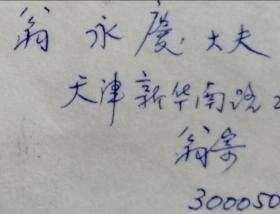 翁永慶大夫
天津新华南路2
翁寄
300050